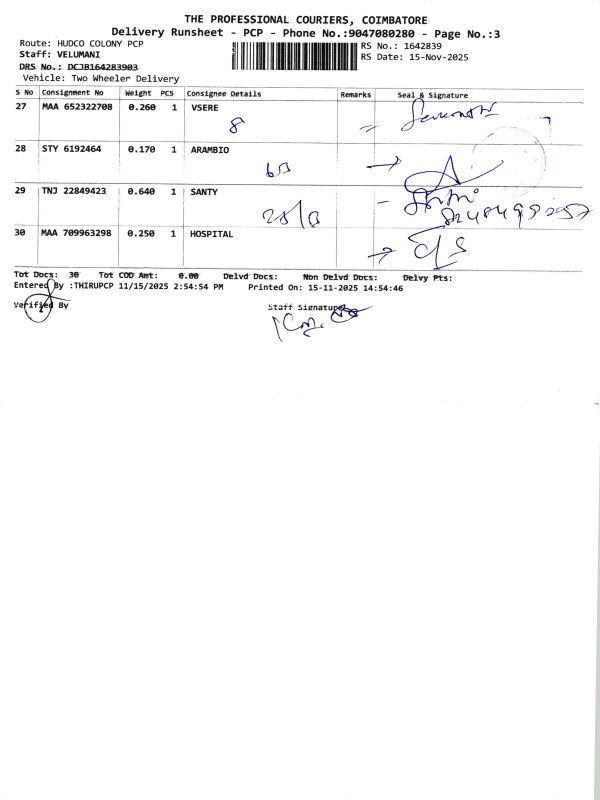 THE PROFESSIONAL COURIERS, COIMBATORE
Delivery Runsheet - PCP - Phone No.:9047080280 - Page No.:3
Route: HUDCO COLONY PCP
RS No.: 1642839
Staff: VELUMANI
RS Date: 15-Nov-2025
DRS No.: DCJB164283903
Vehicle: Two Wheeler Delivery
S No Consignment No Weight PCS Consignee Details Remarks Seal & Signature
27 MAA 652322708 0.260 1 VSERE
8
28 STY 6192464 0.170 1 ARAMBIO
29 TNJ 22849423 0.640 1 SANTY
30 MAA 709963298 0.250 1 HOSPITAL
Tot Docs: 30 Tot COD Amt: 0.00 Delvd Docs: Non Delvd Docs: Delvy Pts:
Entered By :THIRUPCP 11/15/2025 2:54:54 PM Printed On: 15-11-2025 14:54:46
Verified By
Staff Signature